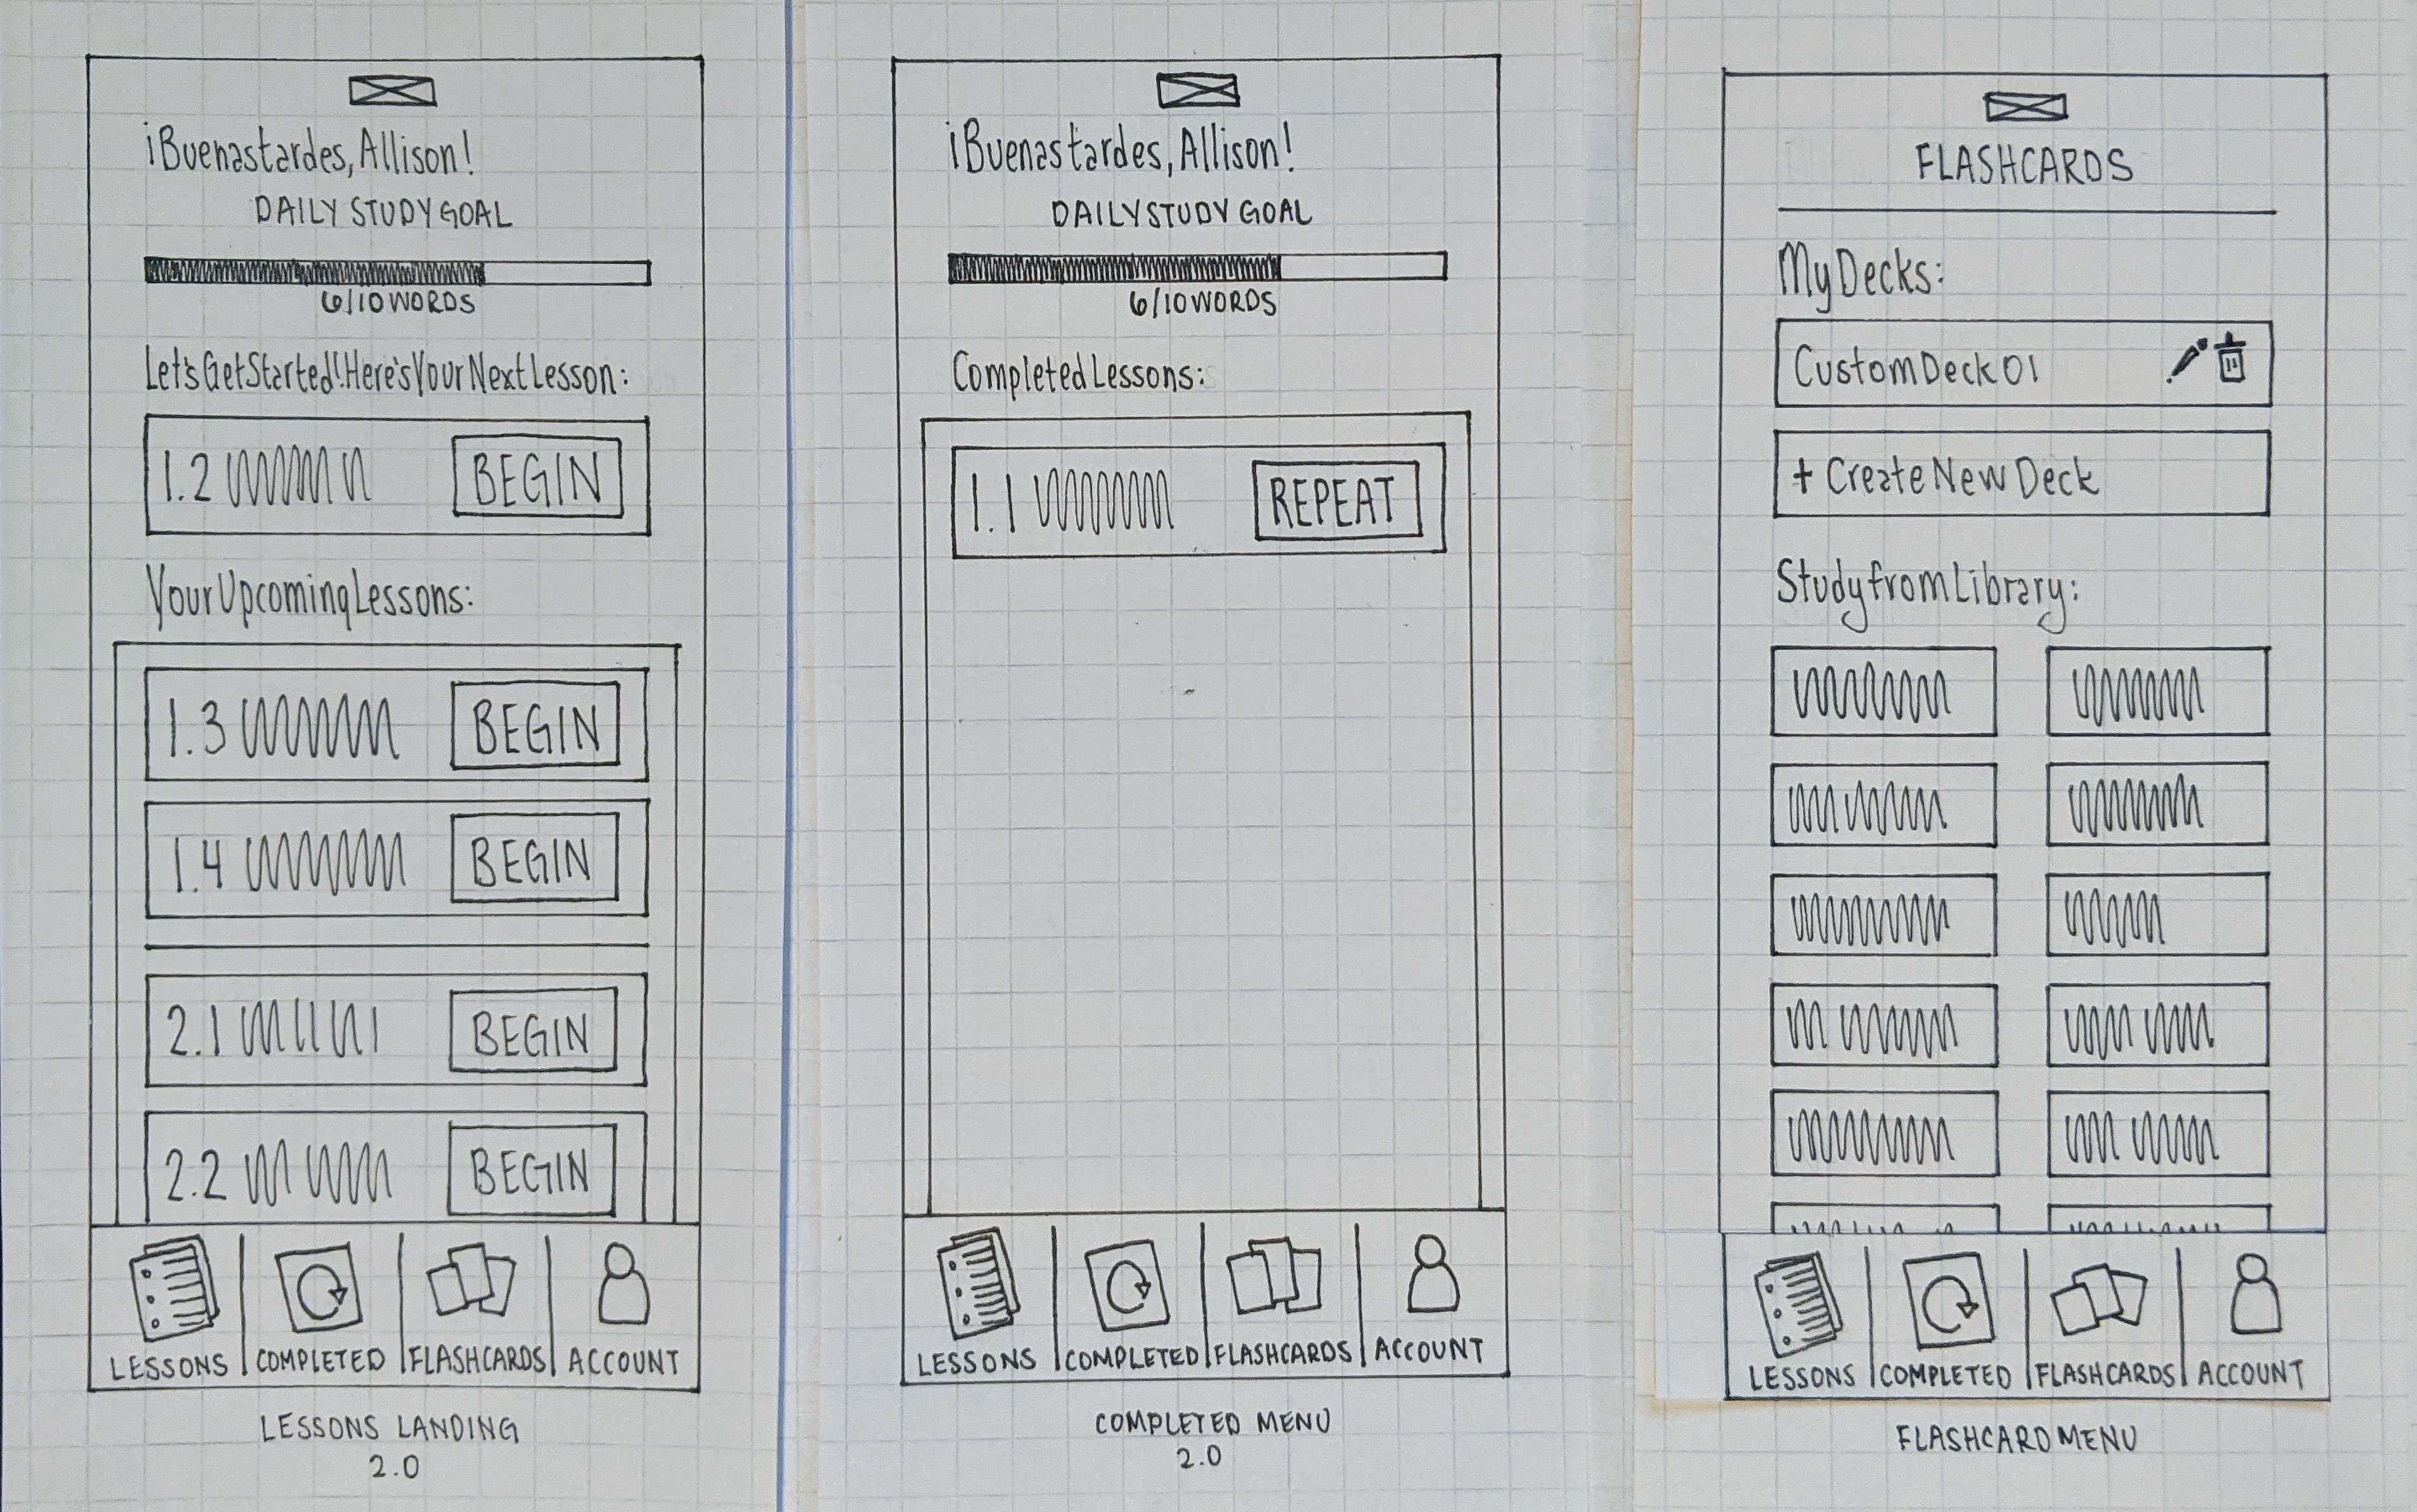 ¡Buenas tardes, Allison!
DAILY STUDY GOAL
6/10 WORDS
Let's Get Started! Here's Your Next Lesson:
1.2 BEGIN
Your Upcoming Lessons:
1.3 BEGIN
1.4 BEGIN
2.1 BEGIN
2.2 BEGIN
LESSONS COMPLETED FLASHCARDS ACCOUNT
LESSONS LANDING
2.0
¡Buenas tardes, Allison!
DAILY STUDY GOAL
6/10 WORDS
Completed Lessons:
1.1 REPEAT
LESSONS COMPLETED FLASHCARDS ACCOUNT
COMPLETED MENU
2.0
FLASHCARDS
My Decks:
Custom Deck 01
+ Create New Deck
Study from Library:
LESSONS COMPLETED FLASHCARDS ACCOUNT
FLASHCARD MENU